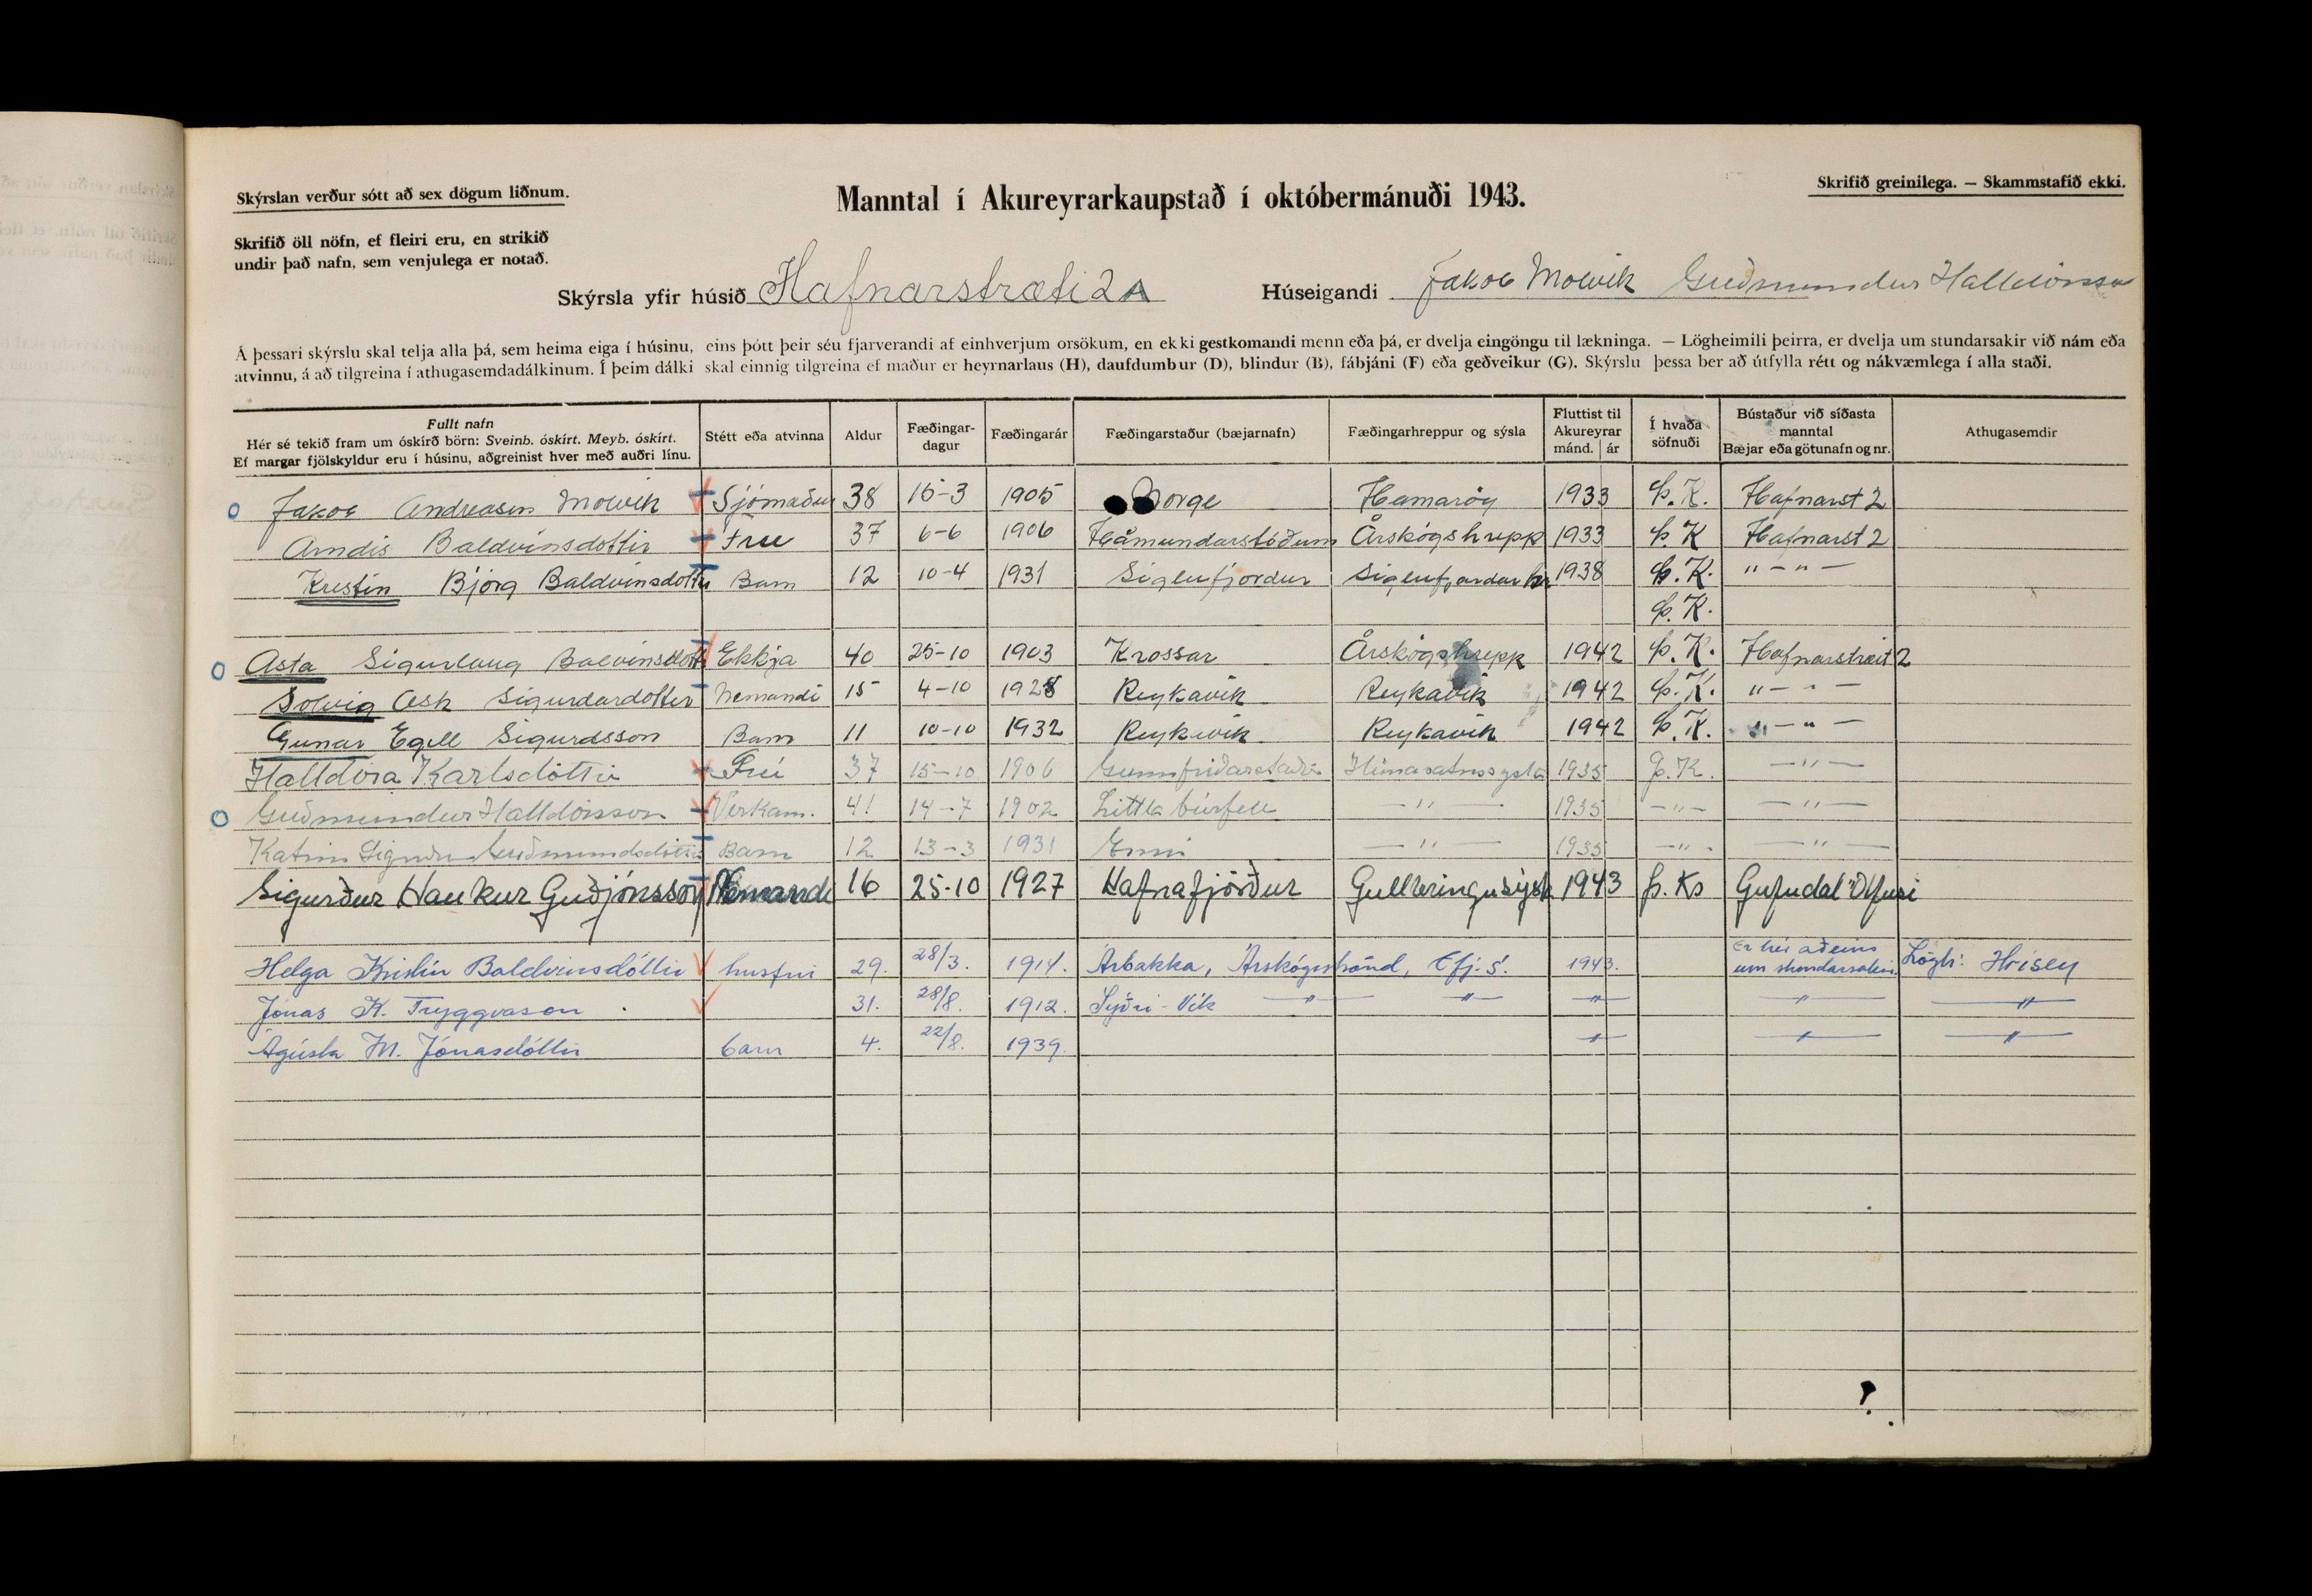 Skýrslan verður sótt að sex dögum liðnum.
Manntal í Akureyrarkaupstað í októbermánuði 1943.
Skrifið greinilega. — Skammstafið ekki.
Skrifið öll nöfn, ef fleiri eru, en strikið
undir það nafn, sem venjulega er notað.
Skýrsla yfir húsið Hafnarstræti 2A Húseigandi Jakob Molvik Guðmundur Halldórsson
Á þessari skýrslu skal telja alla þá, sem heima eiga í húsinu, eins þótt þeir séu fjarverandi af einhverjum orsökum, en ekki gestkomandi menn eða þá, er dvelja eingöngu til lækninga. — Lögheimili þeirra, er dvelja um stundarsakir við nám eða
atvinnu, á að tilgreina í athugasemdadálkinum. Í þeim dálki skal einnig tilgreina ef maður er heyrnarlaus (H), daufdumbur (D), blindur (B), fábjáni (F) eða geðveikur (G). Skýrslu þessa ber að útfylla rétt og nákvæmlega í alla staði.
Fullt nafn
Hér sé tekið fram um óskírð börn: Sveinb. óskírt. Meyb. óskírt.
Ef margar fjölskyldur eru í húsinu, aðgreinist hver með auðri línu.
Stétt eða atvinna
Aldur
Fæðingar-
dagur
Fæðingarár
Fæðingarstaður (bæjarnafn)
Fæðingarhreppur og sýsla
Fluttist til
Akureyrar
mánd. ár
Í hvaða
söfnuði
Bústaður við síðasta
manntal
Bæjar eða götunafn og nr.
Athugasemdir
Jakob Andreasen Molvik Sjómaður 38 15-3 1905 Norge Hamaröy 1933 Þ.K. Hafnarst 2
Arndis Baldvinsdottir Frue 37 6-6 1906 Håmundarstöðum Årskógshrepp 1933 Þ.K Hafnarst 2
Kristin Bjórg Baldvinsdottir Barn 12 10-4 1931 Siglufjordur Siglufjardar hr 1938 Þ.K. " - " -
Þ.K.
Asta Sigurlaug Baldvinsdott Ekkja 40 25-10 1903 Krossar Årskógshrepp 1942 Þ.K. Hafnarstræit 2
Solvig Ask Sigurdardotter Nemandi 15 4-10 1928 Reykavik Reykavik 1942 Þ.K. " - " -
Gunar Egell Sigurdsson Barn 11 10-10 1932 Reykivik Reykavik 1942 Þ.K. " - " -
Halldóra Karlsdóttir Frú 37 15-10 1906 Gunnfríðarstaðir Húnavatnssysla 1935 Þ.K. — " —
Guðmundur Halldórsson Verkam. 41 14-7 1902 Littla búrfell — " — 1935 — " — — " —
Katrin Guðmundsdóttir Barn 12 13-3 1931 Enni — " — 1935 — " — — " —
Sigurður Haukur Guðjónsson Nemandi 16 25-10 1927 Hafnafjörður Gullbringusýsla 1943 Þ.Ks Gufudal Ölfusi
Helga Kristín Baldvinsdóttir husfrú 29. 28/3. 1914. Árbakka, Árskógsströnd, Efj.s. 1943. Er hér aðeins
um stundarsakir. Lögh: Hrísey
Jónas K. Tryggvason 31. 28/8. 1912. Syðri-Vík — " — — " — — " — — " — — " —
Ágústa M. Jónasdóttir barn 4. 22/8. 1939. — " — — " — — " —
?